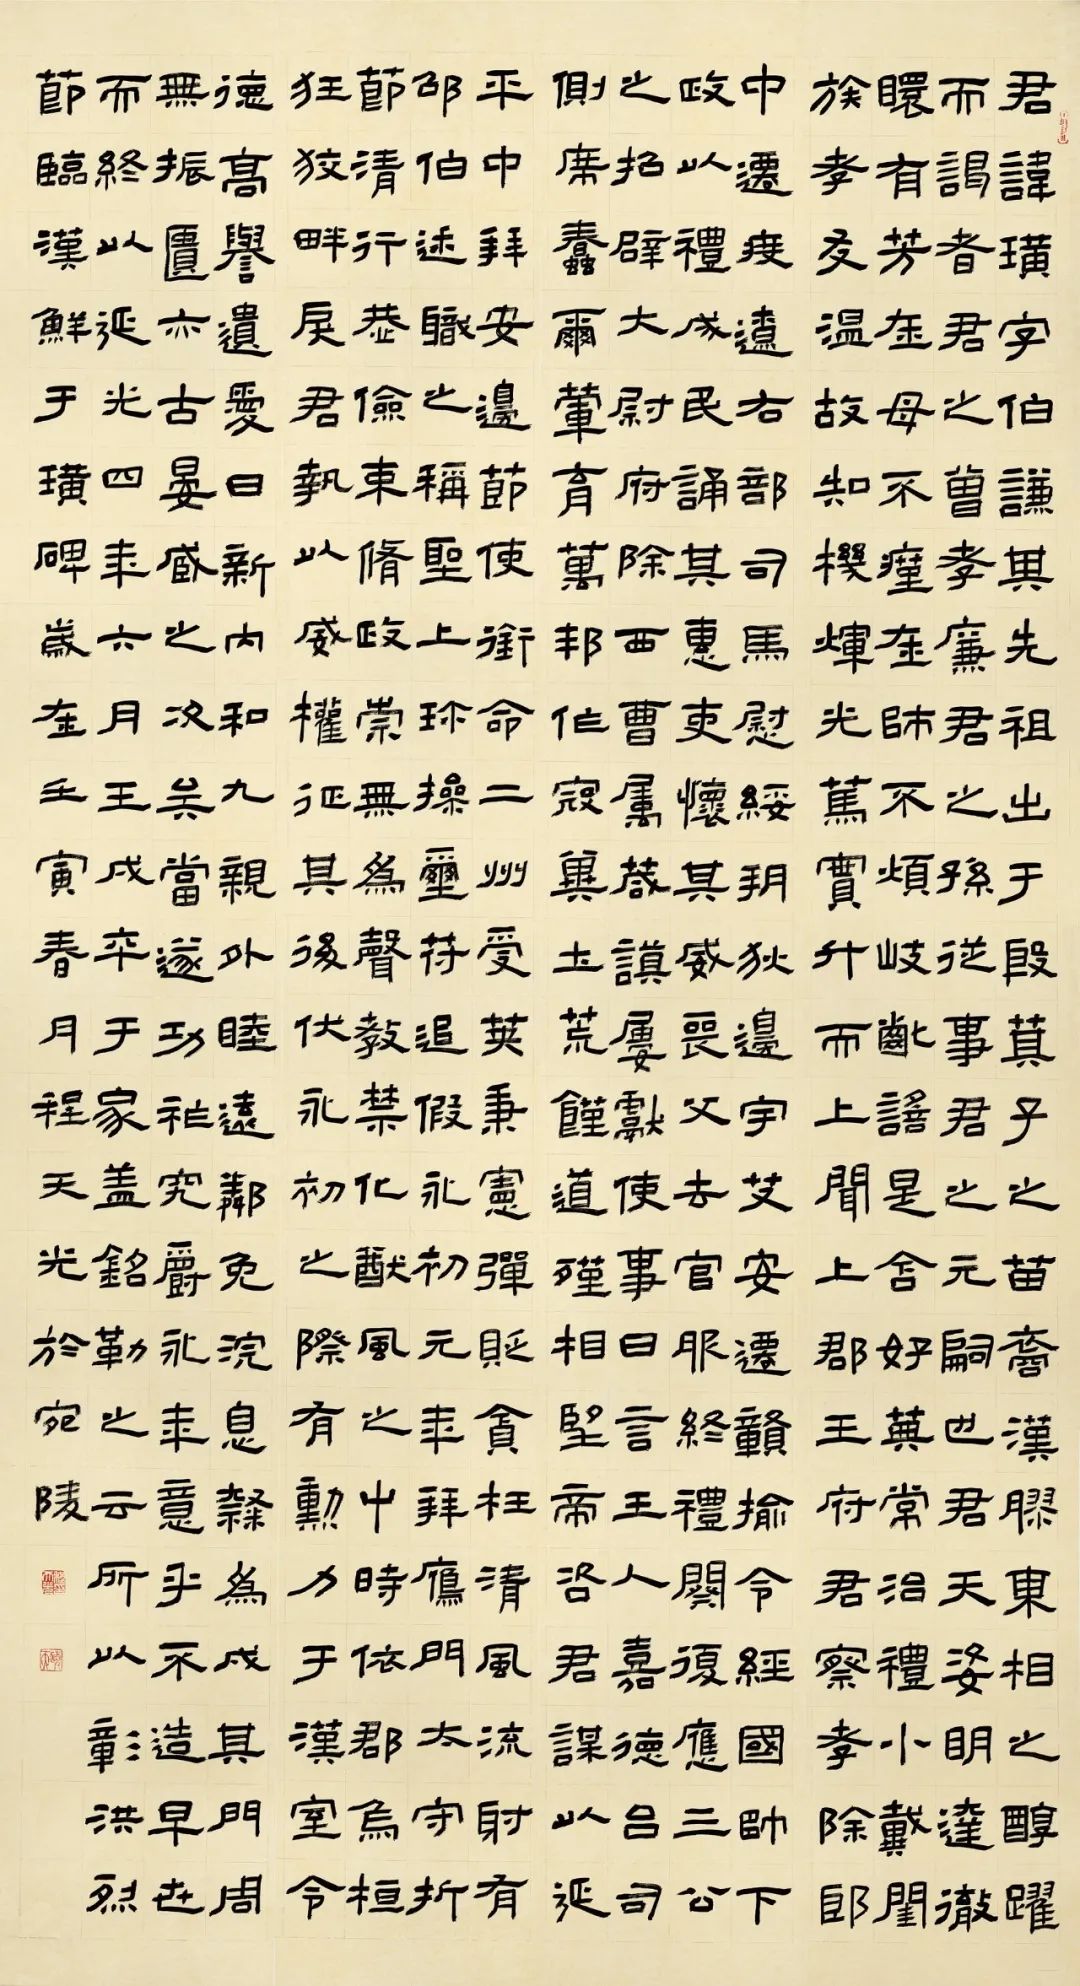 君諱璜字伯謙其先祖出于殷萁子之苗裔漢膠東相之醇躍
而謁者君之曾孝廉君之孫從事君之元嗣也君天姿明達徹
瞏有芳在母不瘽在師不煩岐齔謠是含好英常治禮小戴閨
族孝友溫故知機煇光篤實升而上聞上郡王府君察孝除郎
中遷度遼右部司馬慰綏朔狄邊宇艾安遷贛揄令經國帥下
政以禮成民誦其惠吏懷其威喪父去官服終禮闋復應三公
之招辟大尉府除西曹屬荐謨屢獻使事日言王人嘉德台司
側席蠢爾葷育萬邦作寇冀土荒饉道殣相望帝咨君謀以延
平中拜安邊節使銜命二州受筴秉憲彈貶貪枉清風流射有
邵伯述職之稱聖上珎操璽符追假永初元年拜鴈門太守折
節清行恭儉束脩政崇無為聲教禁化猷風之中時依郡烏桓
狂狡畔戾君執以威權征其後伏永初之際有勳力于漢室令
德高譽遺愛日新內和九親外睦遠鄰免浣息隸為成其門周
無振匱亦古晏臧之次矣當遂功祚究爵永年意乎不造早世
而終以延光四年六月壬戌卒于家蓋銘勒之云所以彰洪烈
節臨漢鮮于璜碑歲在壬寅春月程天光於宛陵